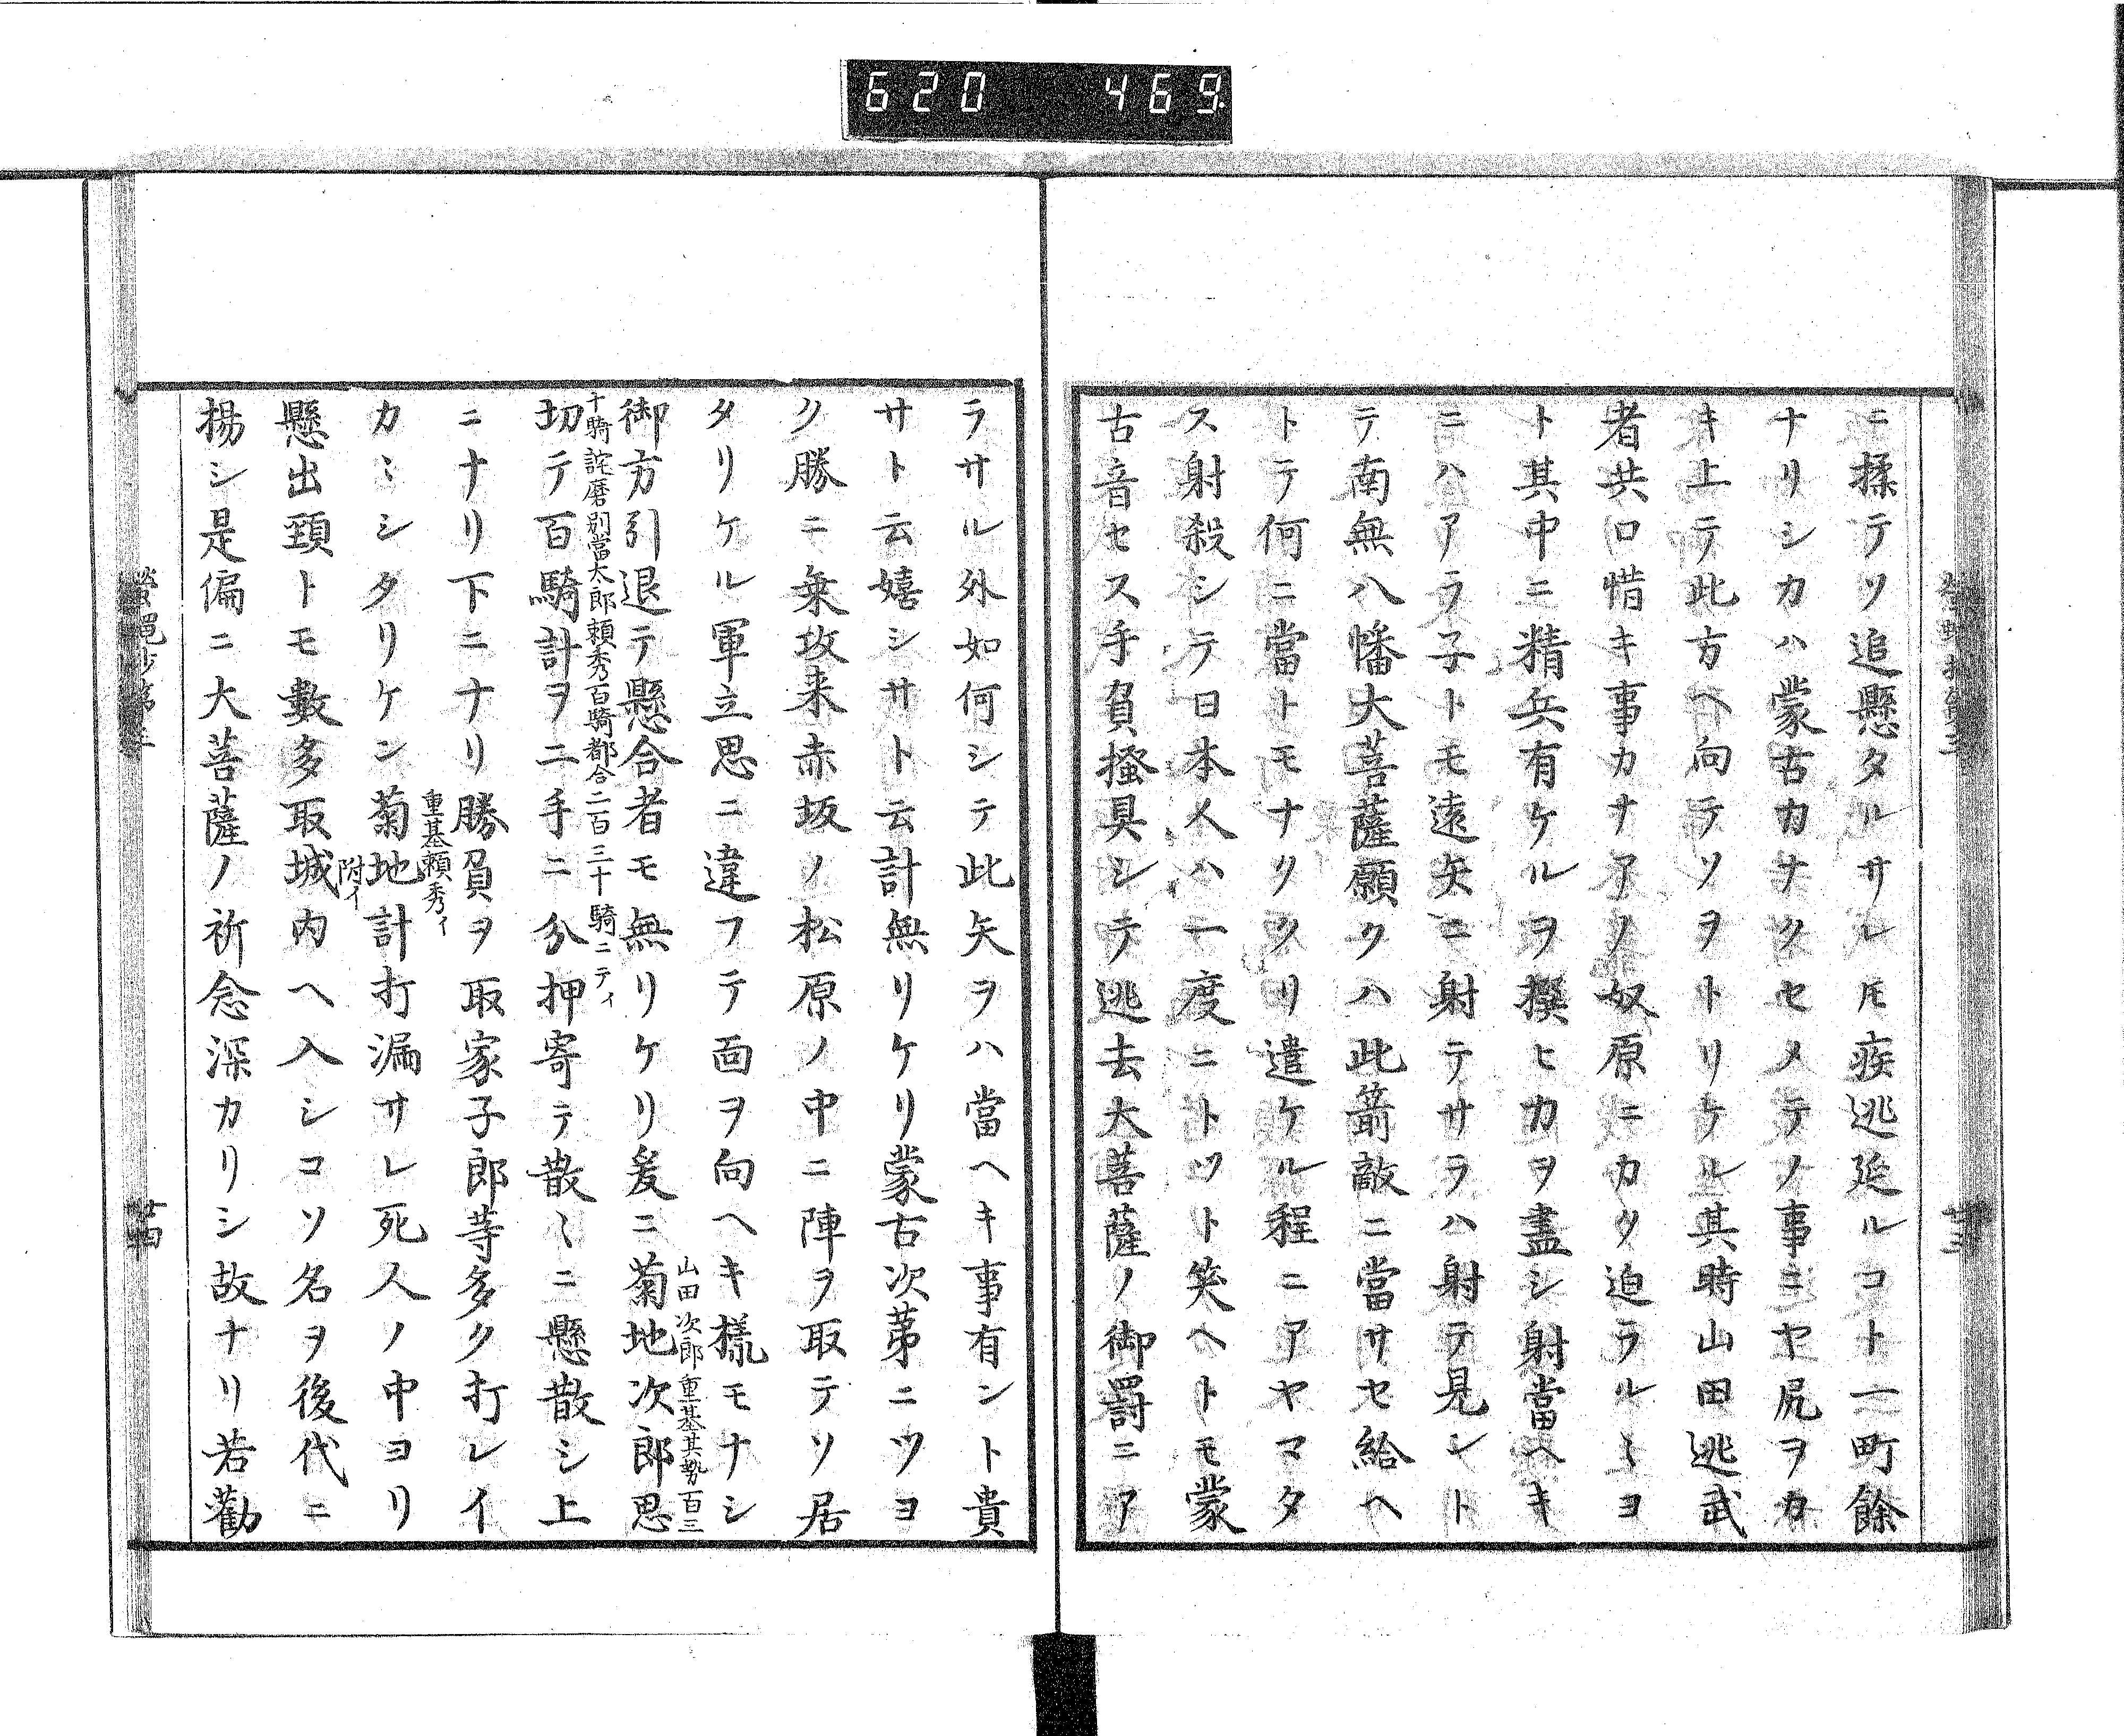 620 469
ニ揉テソ追懸タルサレ𪜈疾逃延ルコト一町餘
ナリシカハ蒙古カナクセメテノ事ニヤ尻ヲカ
キ上テ此方ヘ向テソヲトリケル其時山田逃武
者共口惜キ事カナアノ奴原ニカク迫ラルヽヨ
ト其中ニ精兵有ケルヲ撰ヒカヲ盡シ射當ヘキ
ニハアラ子トモ遠矢ニ射テサラハ射テ見シト
テ南無八幡大菩薩願クハ此箭敵ニ當サセ給ヘ
トテ何ニ當トモナクツリ遣ケル程ニアヤマタ
ス射殺シテ日本人ハ一度ニトツト笑ヘトモ蒙
古音セス手負掻具シテ逃去大菩薩ノ御罸ニア
廿三
ラサル外如何シテ此矢ヲハ當ヘキ事有ント貴
サト云嬉シサト云計無リケリ蒙古次苐ニツヨ
ク勝ニ乗攻来赤坂ノ松原ノ中ニ陣ヲ取テソ居
タリケル軍立思ニ違フテ面ヲ向ヘキ樣モナシ
山田次郎重基其勢百三
御方引退テ懸合者モ無リケリ爰ニ菊地次郎思
十騎詫磨別當太郎頼秀百騎都合二百三十騎ニテイ
切テ百騎計ヲ二手ニ分押寄テ散ミニ懸散シ上
ニナリ下ニナリ勝負ヲ取家子郎等多ク打レイ
重基頼秀イ
カミシタリケン菊地計打漏サレ死人ノ中ヨリ
附イ
懸出頚トモ數多取城内ヘ入シコソ名ヲ後代ニ
揚シ是偏ニ大菩薩ノ祈念深カリシ故ナリ若勸
廿四